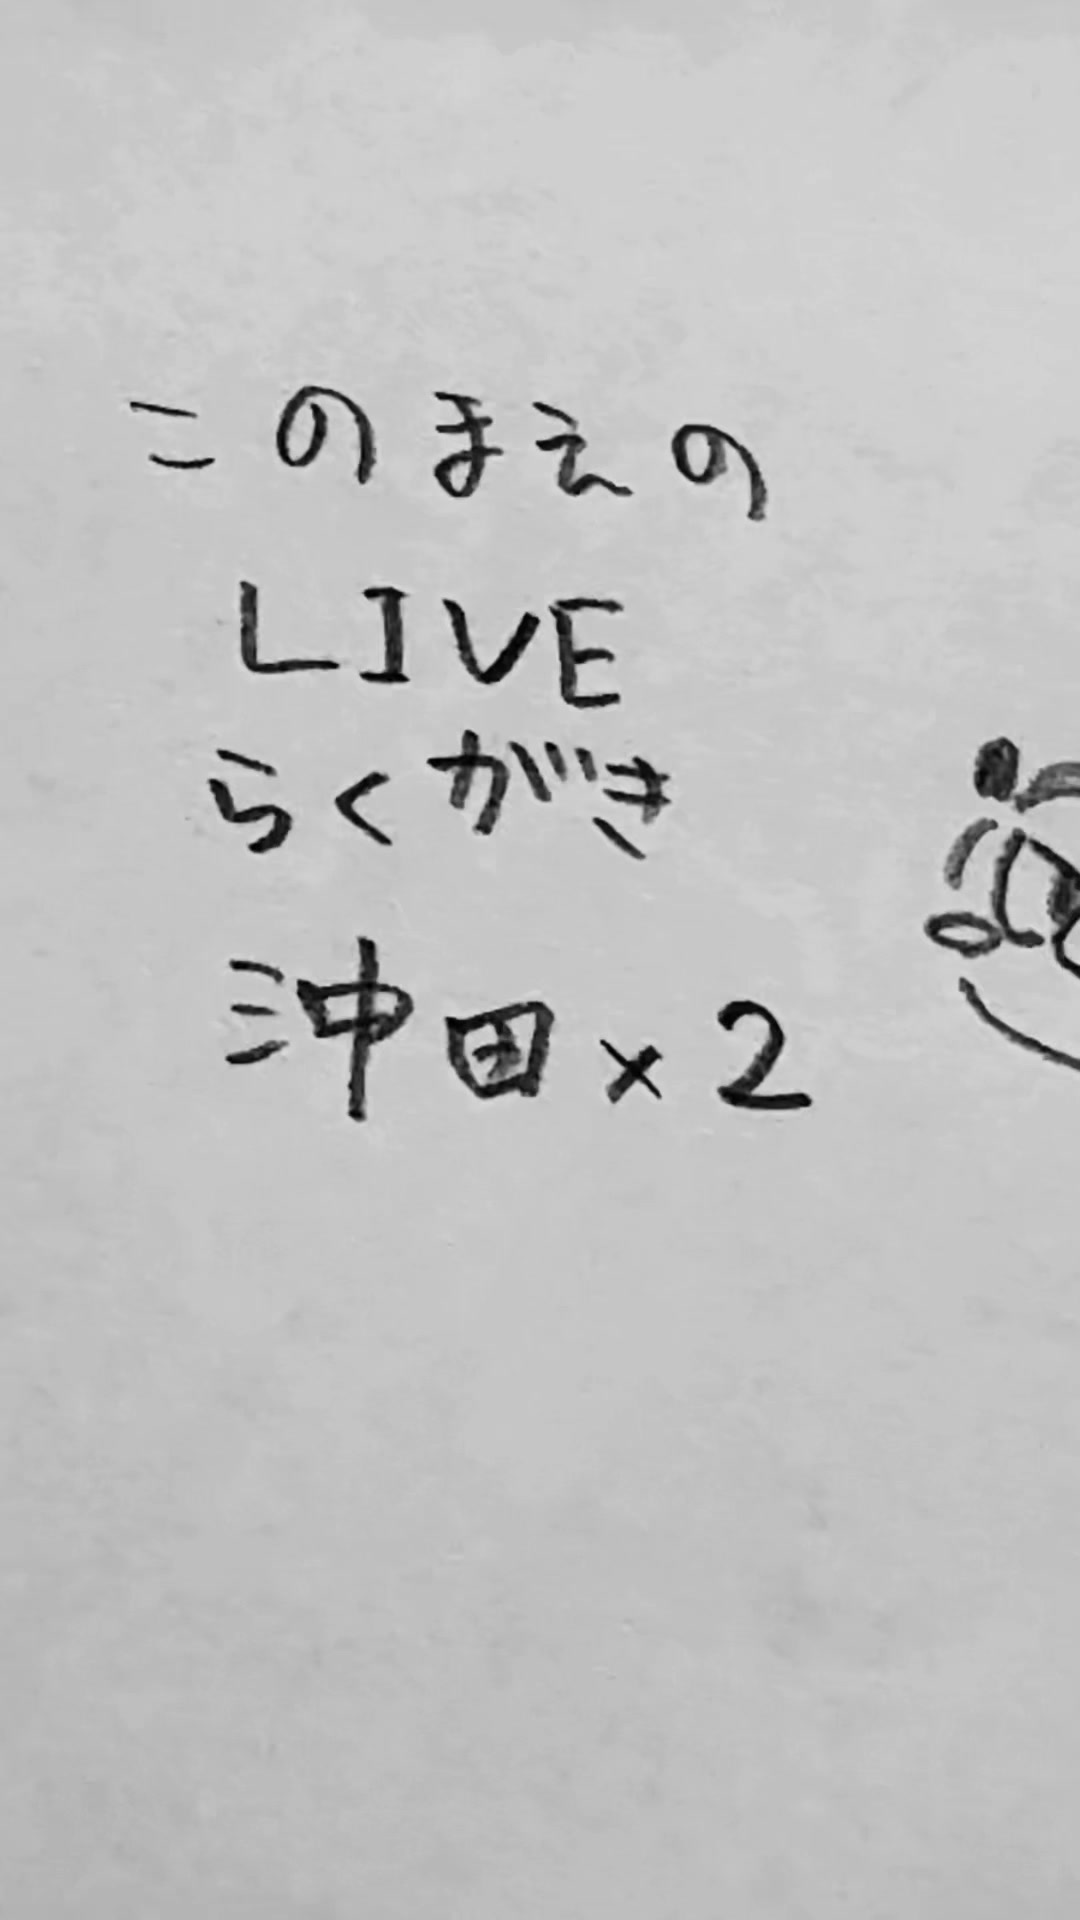 このまえの
LIVE
らくがき
沖田×2